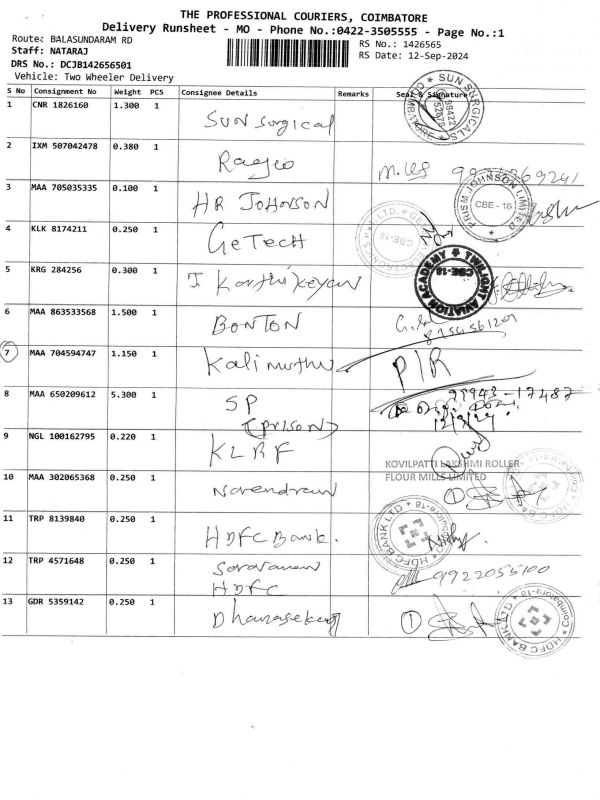 THE PROFESSIONAL COURIERS, COIMBATORE
Delivery Runsheet - MO - Phone No.:0422-3505555 - Page No.:1
Route: BALASUNDARAM RD
RS No.: 1426565
Staff: NATARAJ
RS Date: 12-Sep-2024
DRS No.: DCJB142656501
Vehicle: Two Wheeler Delivery
S No Consignment No Weight PCS Consignee Details Remarks Seal & Signature
1 CNR 1826160 1.300 1 SUN Surgical
SUN SURGICALS
COIMBATORE
2 IXM 507042478 0.380 1
3 MAA 705035335 0.100 1 HR JOHNSON
PRISM JOHNSON LIMITED
CBE - 18
4 KLK 8174211 0.250 1 GeTECH
CBE-18
5 KRG 284256 0.300 1 J Karthikeyan
TWILIGHT AVIATION ACADEMY
CBE-18
6 MAA 863533568 1.500 1 BONTON
7 MAA 704594747 1.150 1 Kalimuthu P/R
8 MAA 650209612 5.300 1 SP
(PRISON)
99943-17487
12/9/24
9 NGL 100162795 0.220 1 KLRF
KOVILPATTI LAKSHMI ROLLER
FLOUR MILLS LIMITED
10 MAA 302065368 0.250 1 Narendran
1
11 TRP 8139840 0.250 1 HDFC Bank.
HDFC BANK LTD
Coimbatore-18
12 TRP 4571648 0.250 1 Saravanan
HDFC
9922055100
13 GDR 5359142 0.250 1 Dhanasekar
1
HDFC BANK LTD
Coimbatore-18